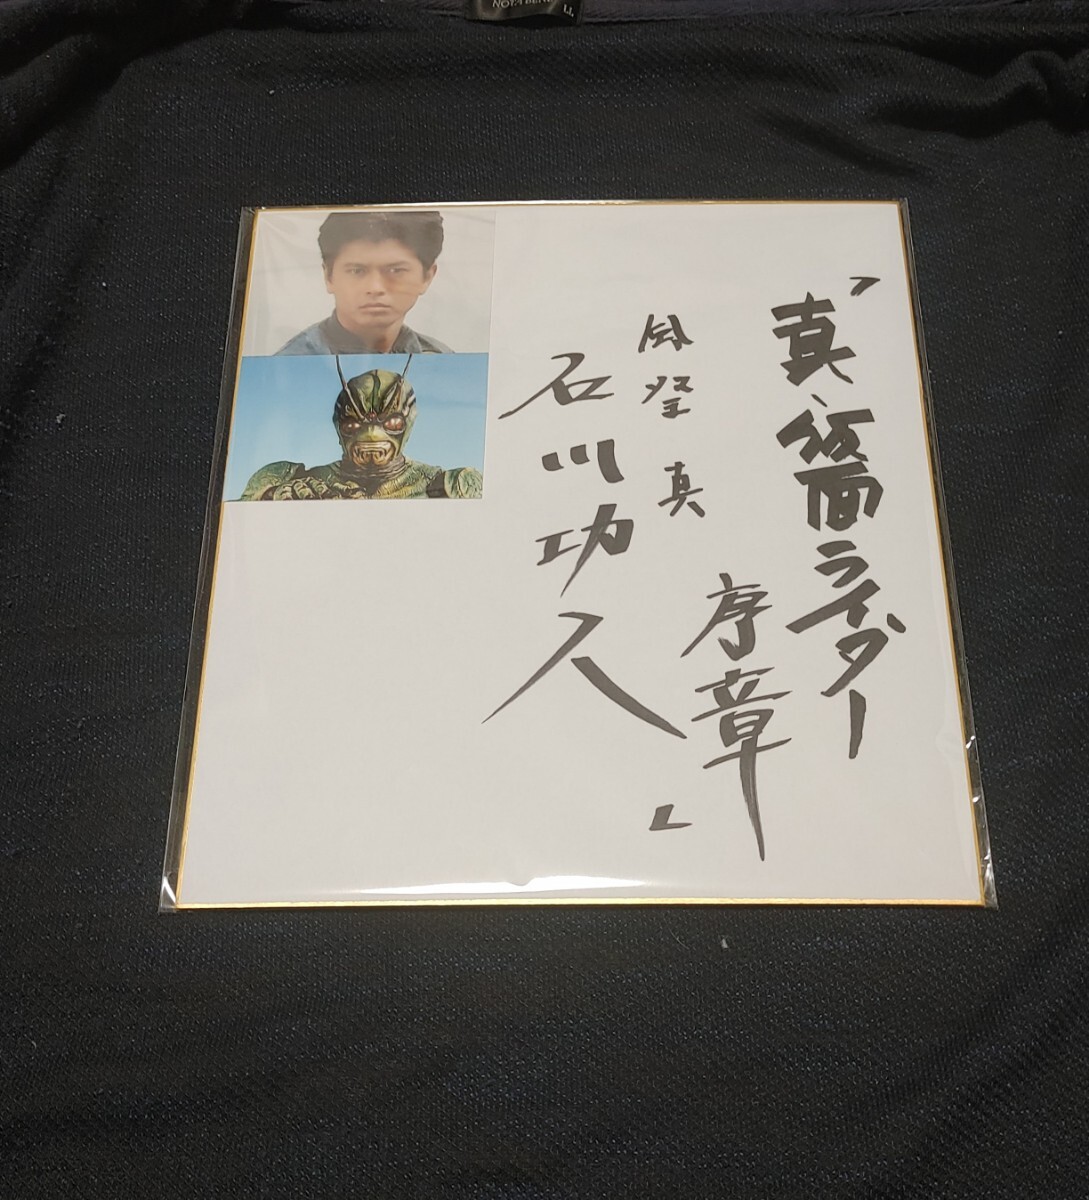 LL
「真・仮面ライダー
序章」
風祭 真
石川功久